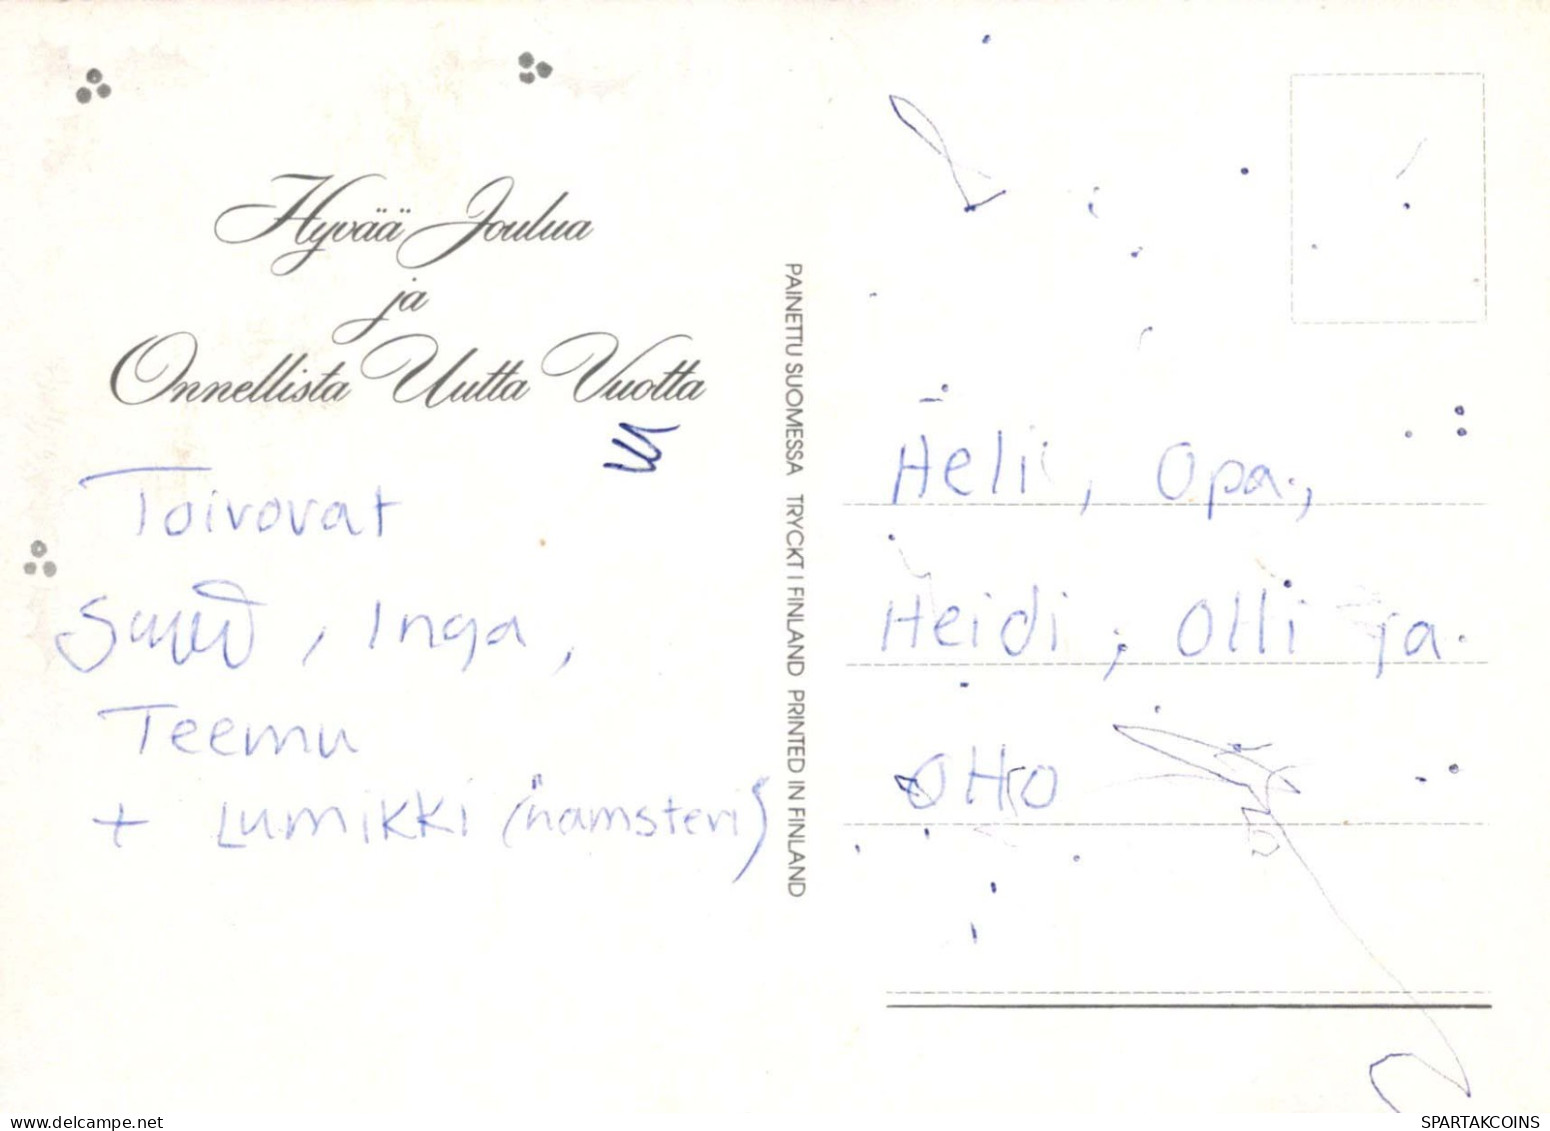 Hyvää Joulua
ja
Onnellista Uutta Vuotta
Toivovat
, Inga,
Teemu
+ Lumikki (hamsteri)
PAINETTU SUOMESSA TRYCKT I FINLAND PRINTED IN FINLAND
Heli, Opa,
Heidi, Olli ja
Otto
delcampe.net
SPARTAKCOINS